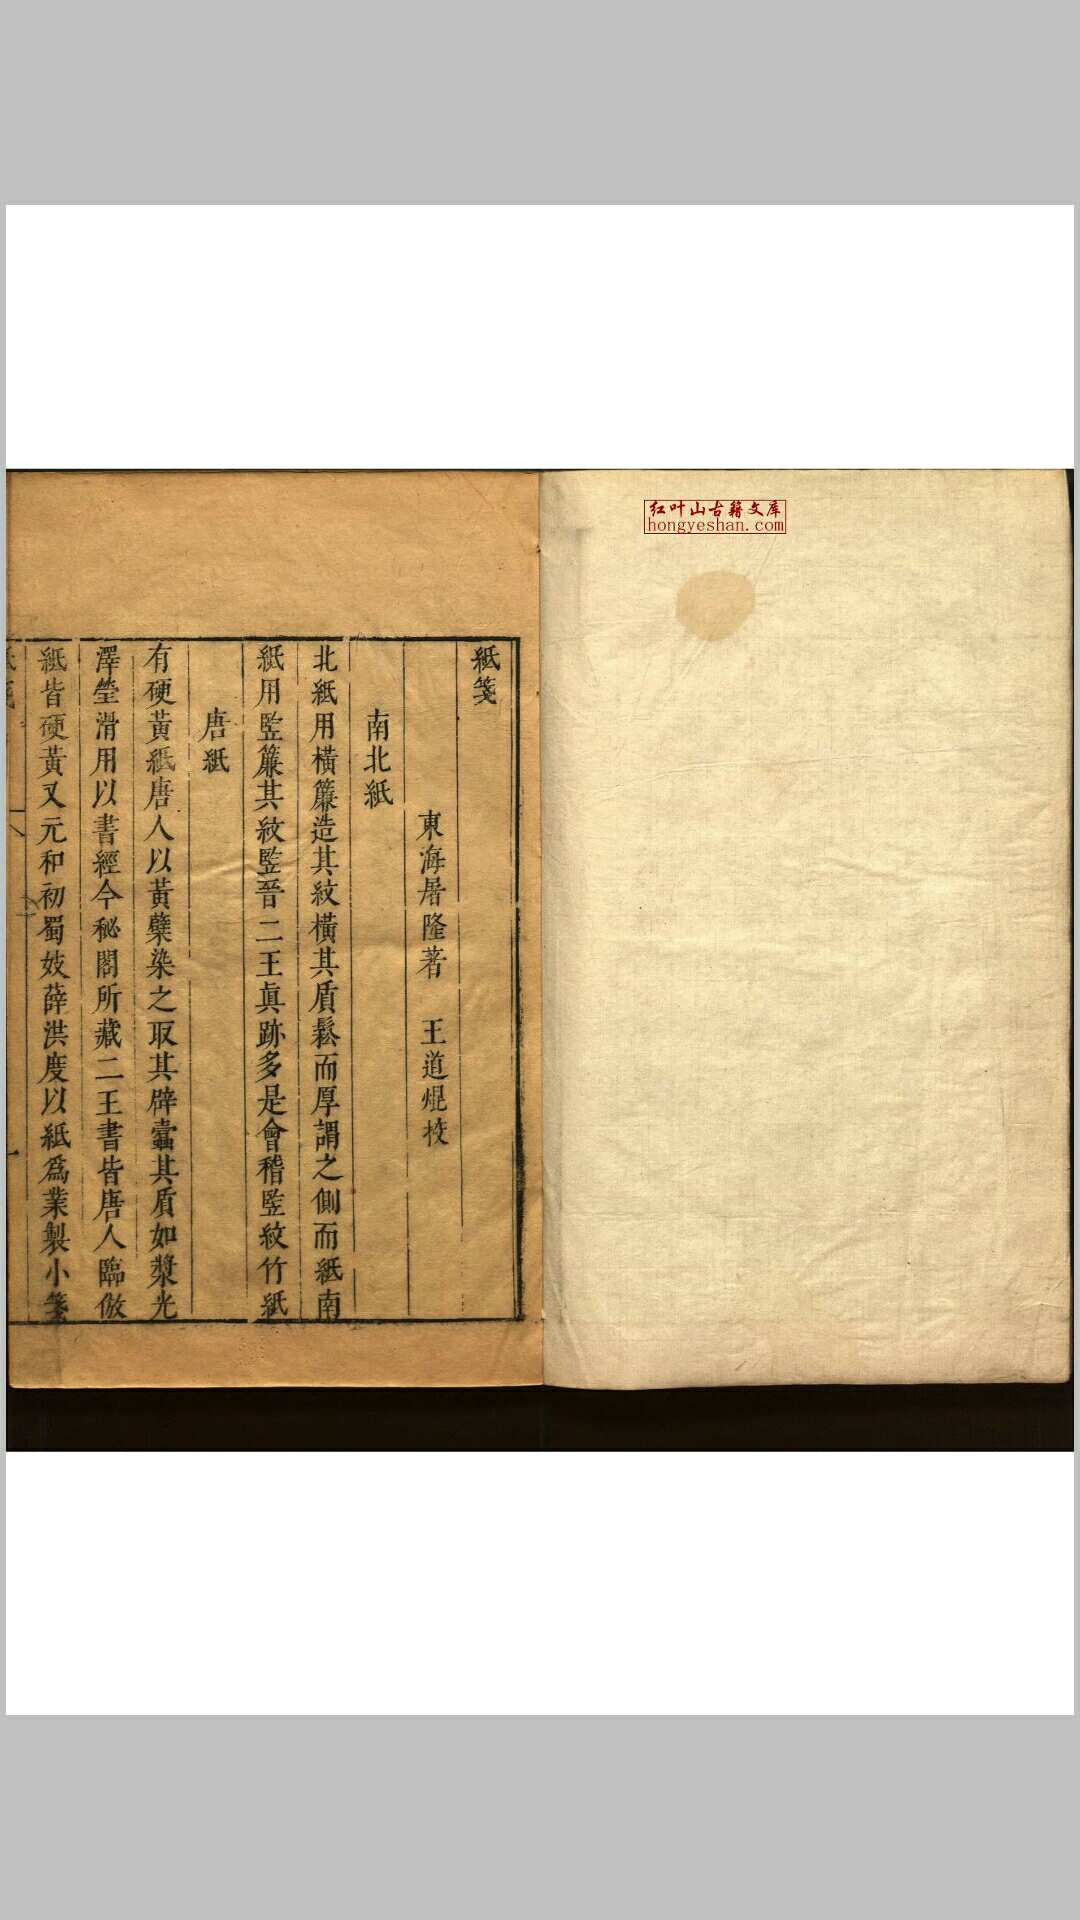 红叶山古籍文库
hongyeshan.com
紙箋
東海屠隆著 王道焜校
南北紙
北紙用橫簾造其紋橫其盾鬆而厚謂之側而紙南
紙用監簾其紋監晉二王眞跡多是會稽監紋竹紙
唐紙
有硬黃紙唐人以黃蘗染之取其辟蠹其盾如漿光
澤瑩滑用以書經今秘閣所藏二王書皆唐人臨倣
紙皆硬黃又元和初蜀妓薛洪度以紙爲業製小箋